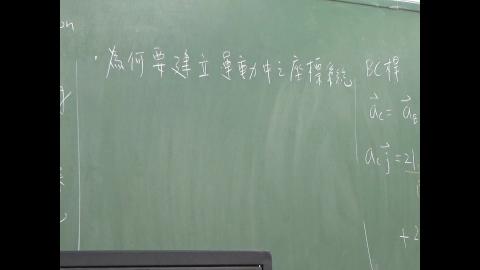 on
·為何要建立運動中之座標系統
BC桿
a⃗c = a⃗B
ac j⃗ = 21
+2